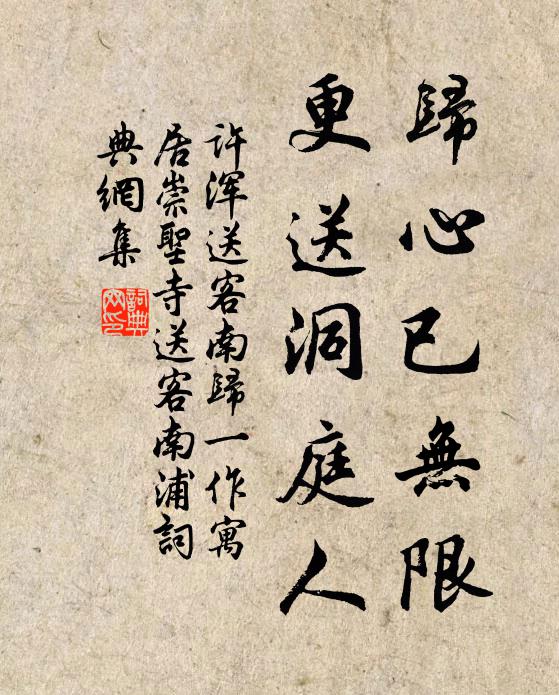 歸心已無限
更送洞庭人
許渾送客南歸一作寓
居崇聖寺送客南浦詞
典網集
詞典
网印